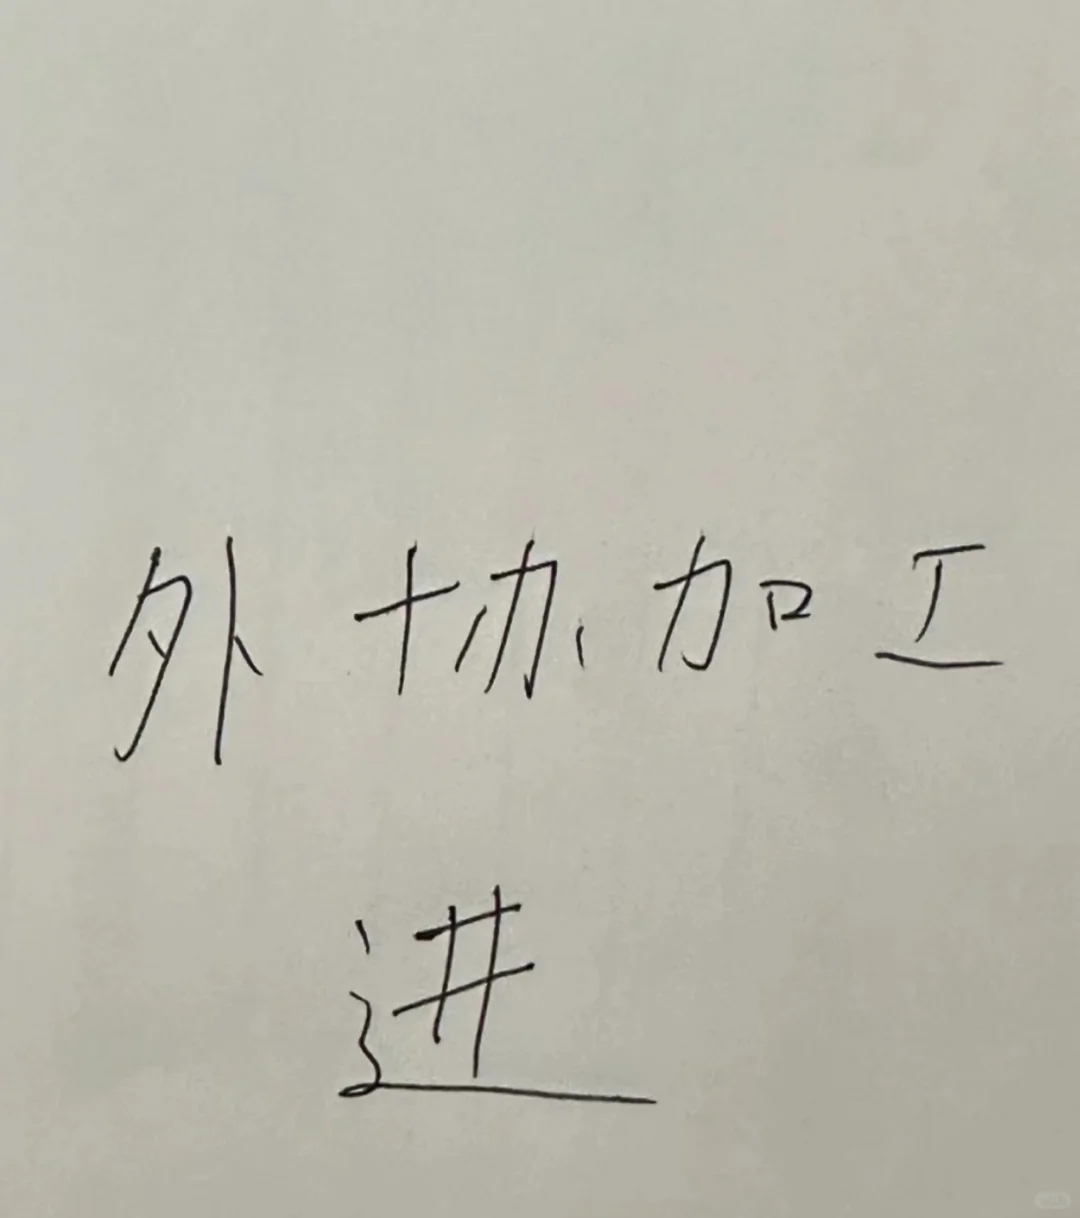 外协加工
进